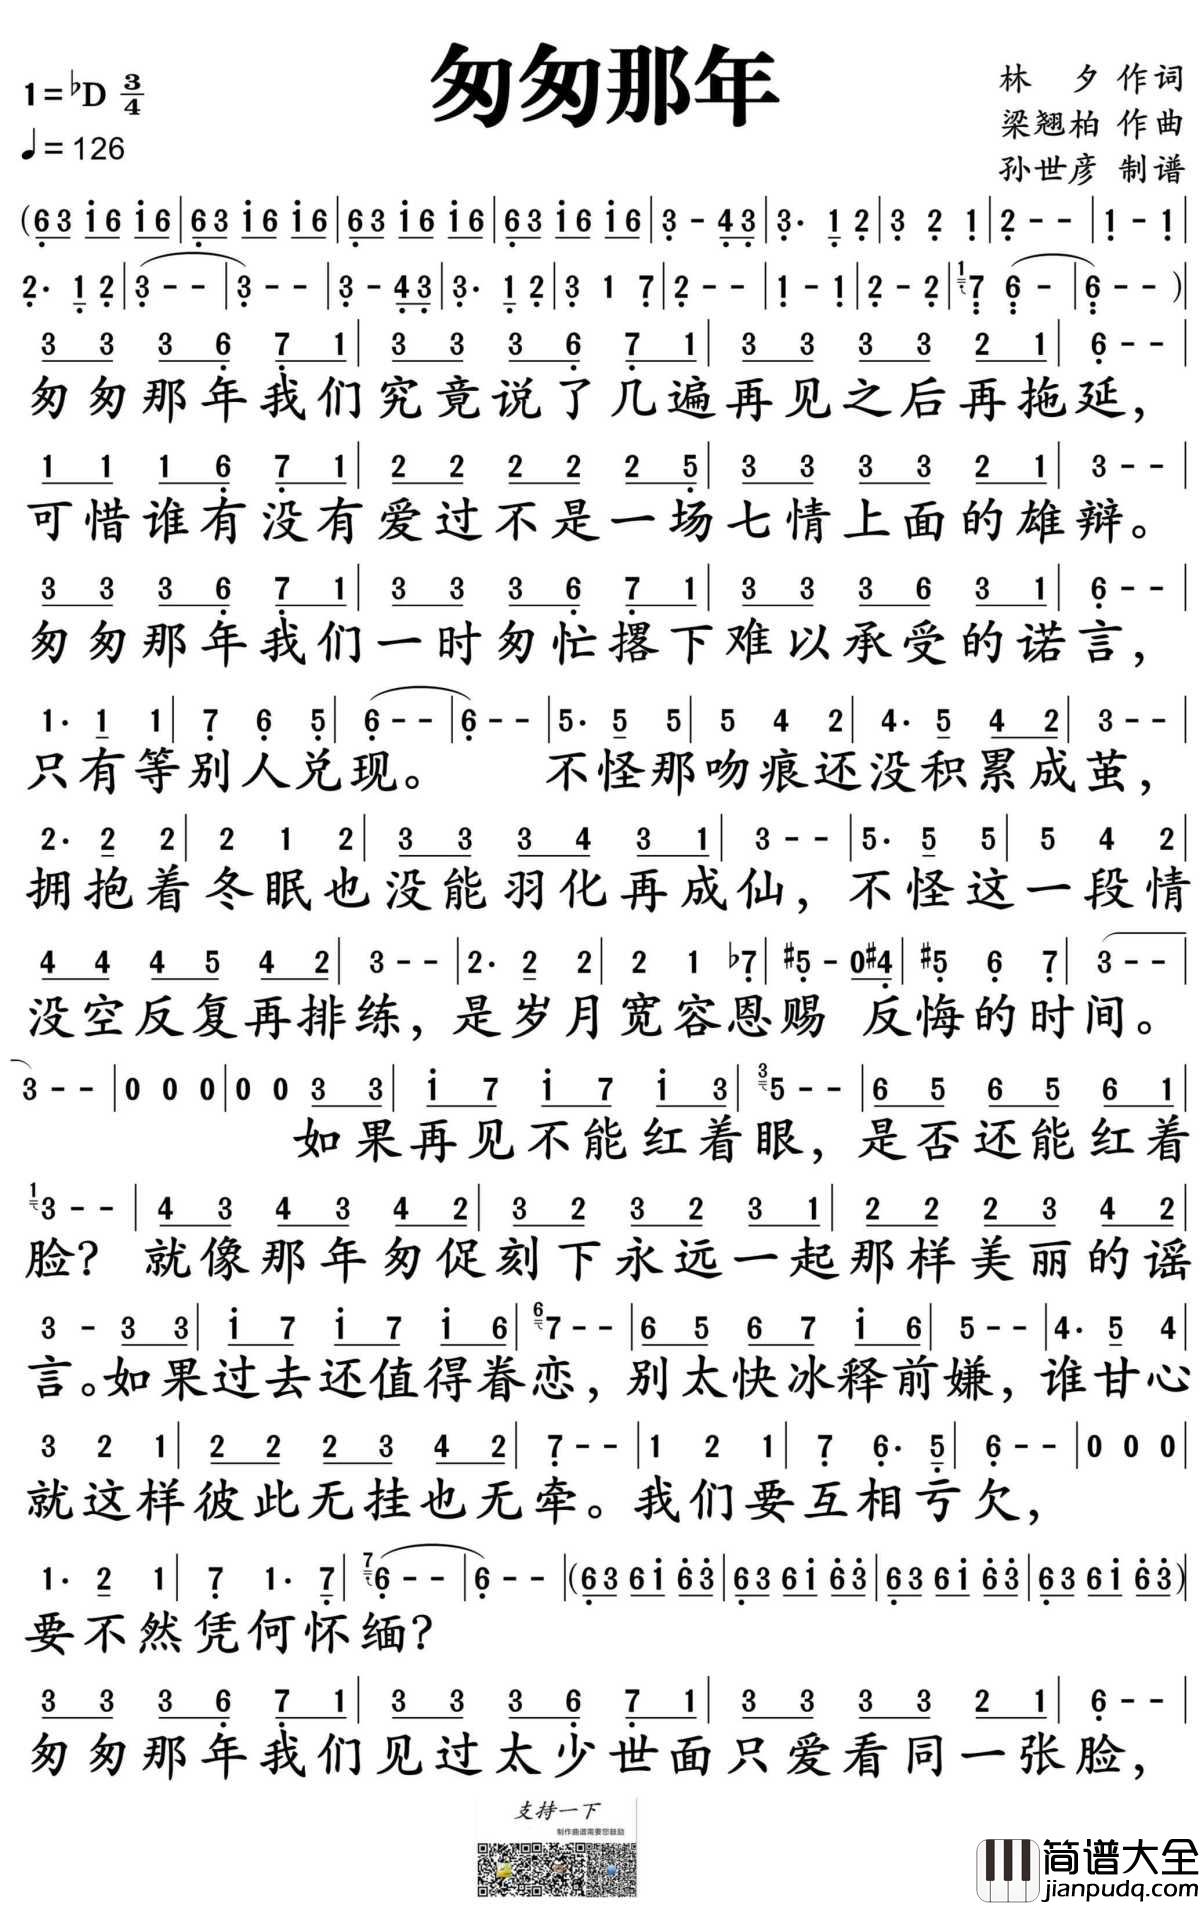 匆匆那年
1=♭D 3/4
♩=126
林 夕 作词
梁翘柏 作曲
孙世彦 制谱
(63 i6 i6|63 i6 i6|63 i6 i6|63 i6 i6|3 - 43|3· 1 2|3 2 1|2 - -|1 - 1|
2· 1 2|3 - -|3 - -|3 - 43|3· 1 2|3 1 7|2 - -|1 - 1|2 - 2|1 7 6 -|6 - -)|
3 3 3 6 7 1|3 3 3 6 7 1|3 3 3 3 2 1|6 - -|
匆匆那年我们究竟说了几遍再见之后再拖延，
1 1 1 6 7 1|2 2 2 2 2 5|3 3 3 3 2 1|3 - -|
可惜谁有没有爱过不是一场七情上面的雄辩。
3 3 3 6 7 1|3 3 3 6 7 1|3 3 3 6 3 1|6 - -|
匆匆那年我们一时匆忙撂下难以承受的诺言，
1· 1 1|7 6 5|6 - -|6 - -|5· 5 5|5 4 2|4· 5 4 2|3 - -|
只有等别人兑现。 不怪那吻痕还没积累成茧，
2· 2 2|2 1 2|3 3 3 4 3 1|3 - -|5· 5 5|5 4 2|
拥抱着冬眠也没能羽化再成仙，不怪这一段情
4 4 4 5 4 2|3 - -|2· 2 2|2 1 ♭7|#5 - 0#4|#5 6 7|3 - -|
没空反复再排练，是岁月宽容恩赐 反悔的时间。
3 - -|0 0 0|0 0 3 3|i 7 i 7 i 3|3 5 - -|6 5 6 5 6 1|
如果再见不能红着眼，是否还能红着
1 3 - -|4 3 4 3 4 2|3 2 3 2 3 1|2 2 2 3 4 2|
脸？ 就像那年匆促刻下永远一起那样美丽的谣
3 - 3 3|i 7 i 7 i 6|6 7 - -|6 5 6 7 i 6|5 - -|4· 5 4|
言。如果过去还值得眷恋，别太快冰释前嫌，谁甘心
3 2 1|2 2 2 3 4 2|7 - -|1 2 1|7 6· 5|6 - -|0 0 0|
就这样彼此无挂也无牵。我们要互相亏欠，
1· 2 1|7 1· 7|7 6 - -|6 - -|(63 6i 63|63 6i 63|63 6i 63|63 6i 63)|
要不然凭何怀缅？
3 3 3 6 7 1|3 3 3 6 7 1|3 3 3 3 2 1|6 - -|
匆匆那年我们见过太少世面只爱看同一张脸，
支持一下
制作曲谱需要您鼓励
简谱大全
jianpudq.com